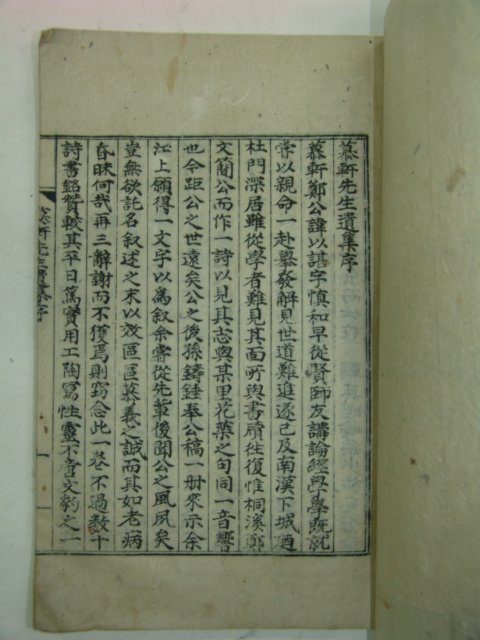 慕軒先生遺集序
慕軒鄭公諱以諶字愼和早從賢師友講論經學學旣就
嘗以親命一赴擧發解見世道難進遂已及南漢下城迺
杜門深居雖從學者難見其面所與書牘往復惟桐溪鄭
文簡公而作一詩以見其志與某里花葉之句同一音響
也今距公之世遠矣公之後孫鑄錘奉公稿一冊來示余
江上願得一文字以爲叙余嘗從先輩後聞公之風夙矣
豈無欲託名叙述之末以效區區慕義之誠而其如老病
昏昧何哉再三辭謝而不獲焉則窃念此一卷不過數十
詩書銘贊較其平日篤實用工陶寫性靈不啻文豹之一
慕軒先生遺集序
一